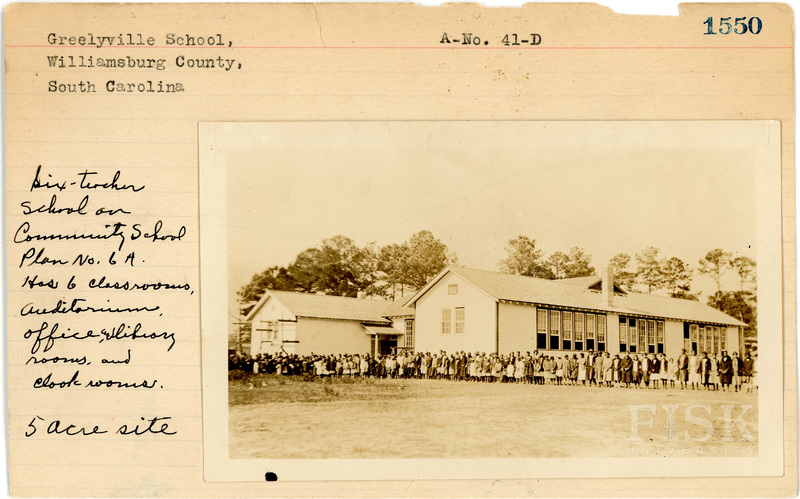 Greelyville School,
Williamsburg County,
South Carolina
A-No. 41-D
1550
Six-teacher
School on
Community School
Plan No. 6 A.
Has 6 classrooms,
auditorium,
office, & library
rooms, and
cloak rooms.
5 acre site
FISK
UNIVERSITY